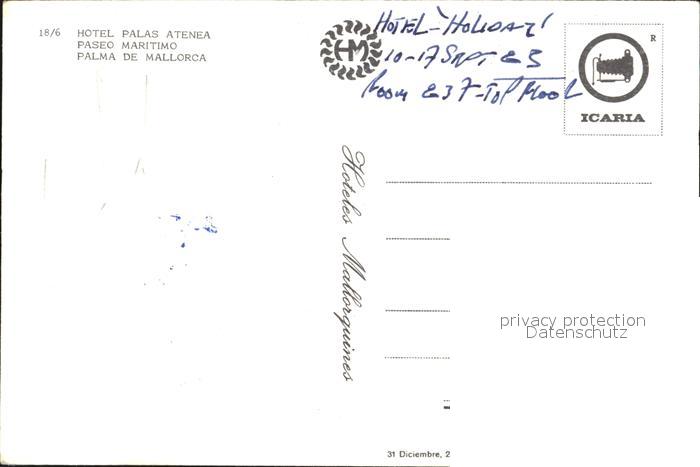 18/6 HOTEL PALAS ATENEA
PASEO MARITIMO
PALMA DE MALLORCA
HM
HOTEL "HOLIDAY"
10-17 SEPT 83
Room 837-TOP FLOOR
R
ICARIA
Hoteles Mallorquines
privacy protection
Datenschutz
31 Diciembre, 2